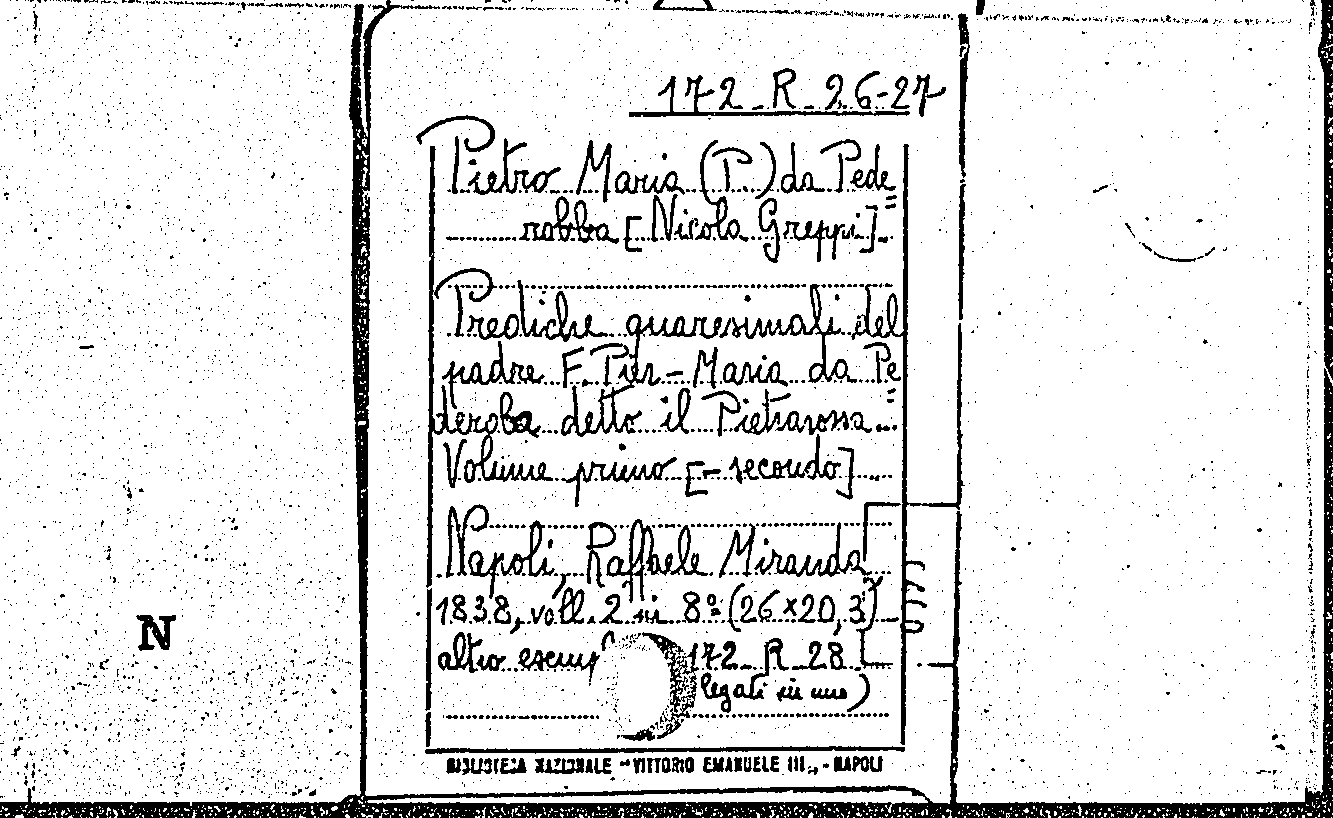 172_R_26-27
Pietro Maria (P.) da Pede=
robba [Nicola Greppi]
Prediche quaresimali del
padre F. Pier-Maria da Pe=
deroba detto il Pietrarossa...
Volume primo [-secondo]
Napoli, Raffaele Miranda
1838, voll. 2 in 8º (26x20,3)
altro esemp 172_R_28
legati in uno)
BIBLIOTECA NAZIONALE "VITTORIO EMANUELE III„ - NAPOLI
N